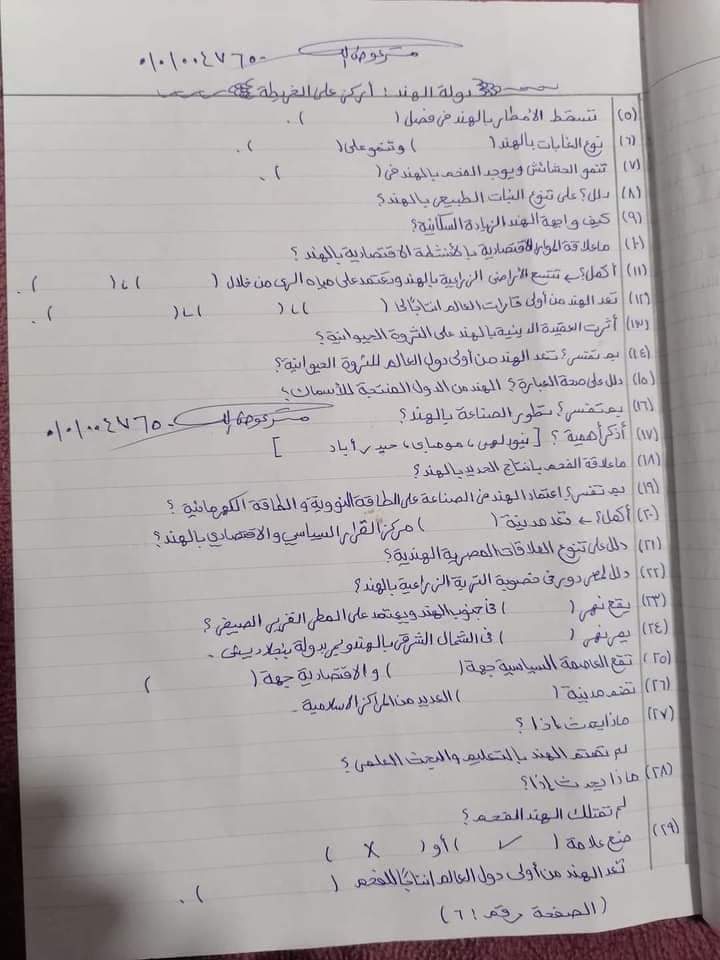 ٠١٠١٠٠٤٧٦٥٠
دولة الهند : أركز على الخريطة
(٥) تسقط الأمطار بالهند في فصل ( ).
(٦) نوع الغابات بالهند ( ) وتنمو على ( ).
(٧) تنمو الحشائش ويوجد الفحم بالهند في ( ).
(٨) دلل؟ على تنوع النبات الطبيعي بالهند؟
(٩) كيف واجهة الهند الزيادة السكانية؟
(١٠) ماعلاقة الموارد الاقتصادية بالأنشطة الاقتصادية بالهند؟
(١١) أكمل؟ ← تتسع الأراضى الزراعية بالهند وتعتمد على مياه الرى من خلال ( )، ( ).
(١٢) تعد الهند من أولى قارات العالم انتاجًا لـ ( )، ( )، ( ).
(١٣) أثرت العقيدة الدينية بالهند على الثروة الحيوانية؟
(١٤) بم تفسر؟ تعد الهند من أولى دول العالم للثروة الحيوانية؟
(١٥) دلل على صحة العبارة؟ الهند من الدول المنتجة للأسماك؟
(١٦) بم تفسر؟ تطور الصناعة بالهند؟
٠١٠١٠٠٤٧٦٥٠
(١٧) أذكر أهمية؟ [نيودلهى، مومباى، حيدر أباد ]
(١٨) ماعلاقة الفحم بانتاج الحديد بالهند؟
(١٩) بم تفسر؟ اعتماد الهند في الصناعة على الطاقة النووية والطاقة الكهرمائية؟
(٢٠) أكمل؟ ← تعد مدينة ( ) مركز القرار السياسي والاقتصادي بالهند؟
(٢١) دلل على تنوع العلاقات المصرية الهندية؟
(٢٢) دلل دور في خصوبة التربة الزراعية بالهند؟
(٢٣) يقع نهر ( ) فى جنوب الهند ويعتمد على المطر الغزير الصيفى؟
(٢٤) يمر نهر ( ) فى الشمال الشرقى بالهند ويمر بدولة بنجلاديش.
(٢٥) تقع العاصمة السياسية جهة ( ) والاقتصادية جهة ( )
(٢٦) تضم مدينة ( ) العديد من المراكز الاسلامية.
(٢٧) ماذا يحدث إذا؟
لم تهتم الهند بالتعليم والبحث العلمى؟
(٢٨) ماذا يحدث إذا؟
لم تمتلك الهند الفحم؟
(٢٩) ضع علامة ( ✓ ) أو ( X )
تعد الهند من أولى دول العالم انتاجًا للفحم ( ).
(الصفحة رقم : ٦)